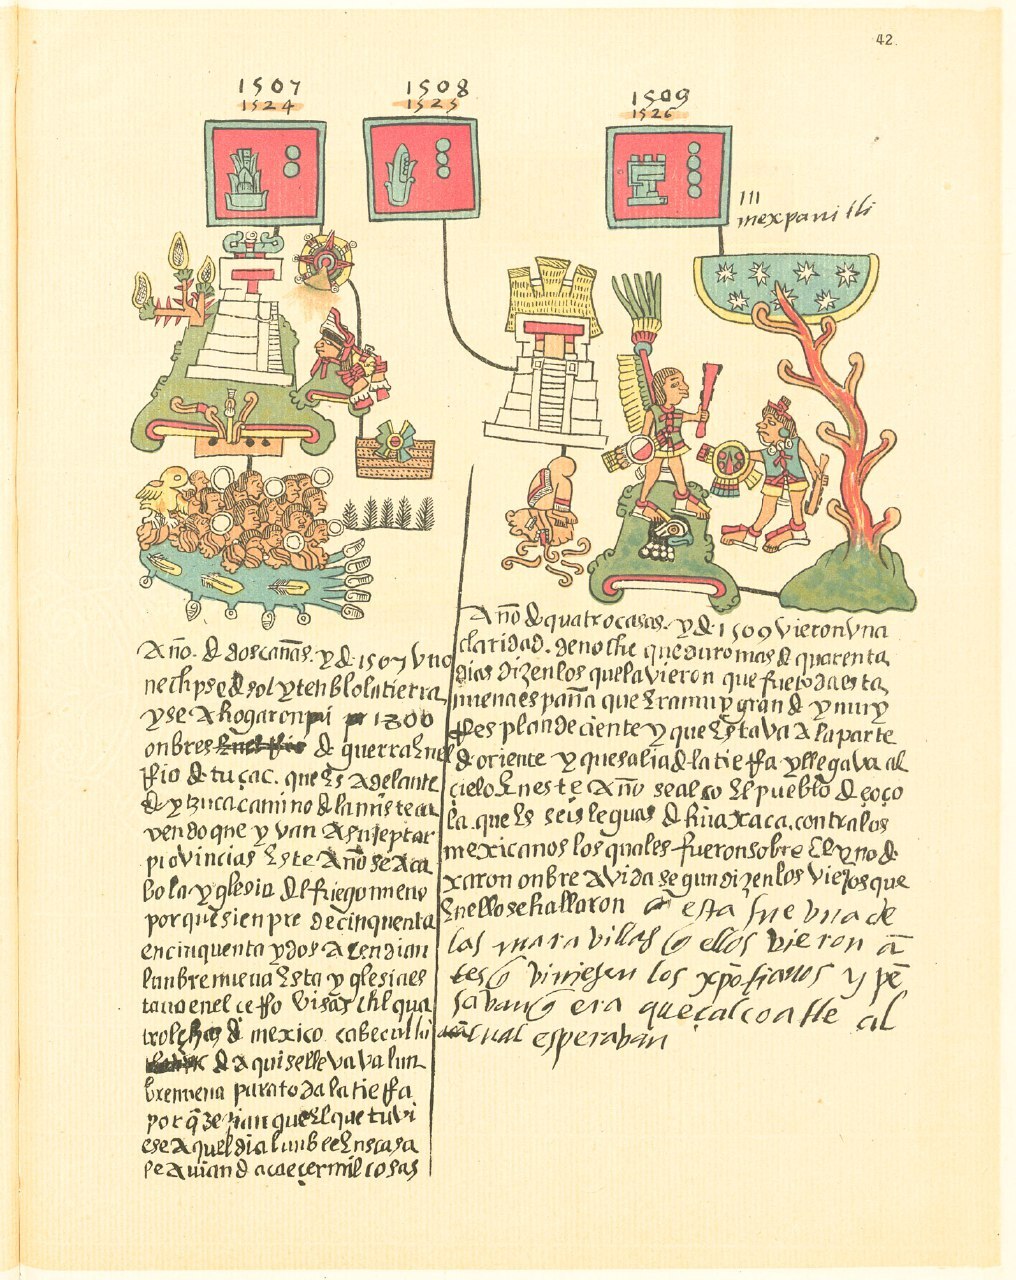 42.
1507
1524
1508
1525
1509
1526
III
mexpanitli
Año. d dos cañas. y d. 1507 Uno
neclipse d sol y tenblo la tierra
y se Ahogaron 1800
onbres d guerra En el
Rio d tuçac. que Es adelante
d yzuca camino d la misteca
yendo que yvan A sujeptar
provincias Este Año se Aca
bo la yglesia del fuego nuevo
porque sienpre de cinquenta
en cinquenta y dos Açendian
lunbre nueva Esta yglesia es
tava en el cerro
d mexico
d aqui se llevava lun
bre nueva para toda la tierra
por q dezian que El que tuvi
ese Aquel dia lunbre En su casa
le avian d acaeçer mil cosas
Año d quatro casas. y d. 1509 vieron Una
claridad. de noche que duro mas d quarenta
dias dizen los que la vieron que fue toda esta
nueva españa que Era muy grand y muy
Resplandeciente y que Estava A la parte
d oriente y que salia d la tierra y llegava al
çielo En este Año se alço El pueblo d çoço
la. que Es seis leguas d huaxaca. contra los
mexicanos los quales fueron sobre El y no d
xaron onbre A vida segun dizen los viejos que
En ello se hallaron esta fue una de
las maravillas q ellos vieron ā
tes q viniesen los xp̄ianos y pē
savan q era queçalcoatle al
cual esperaban